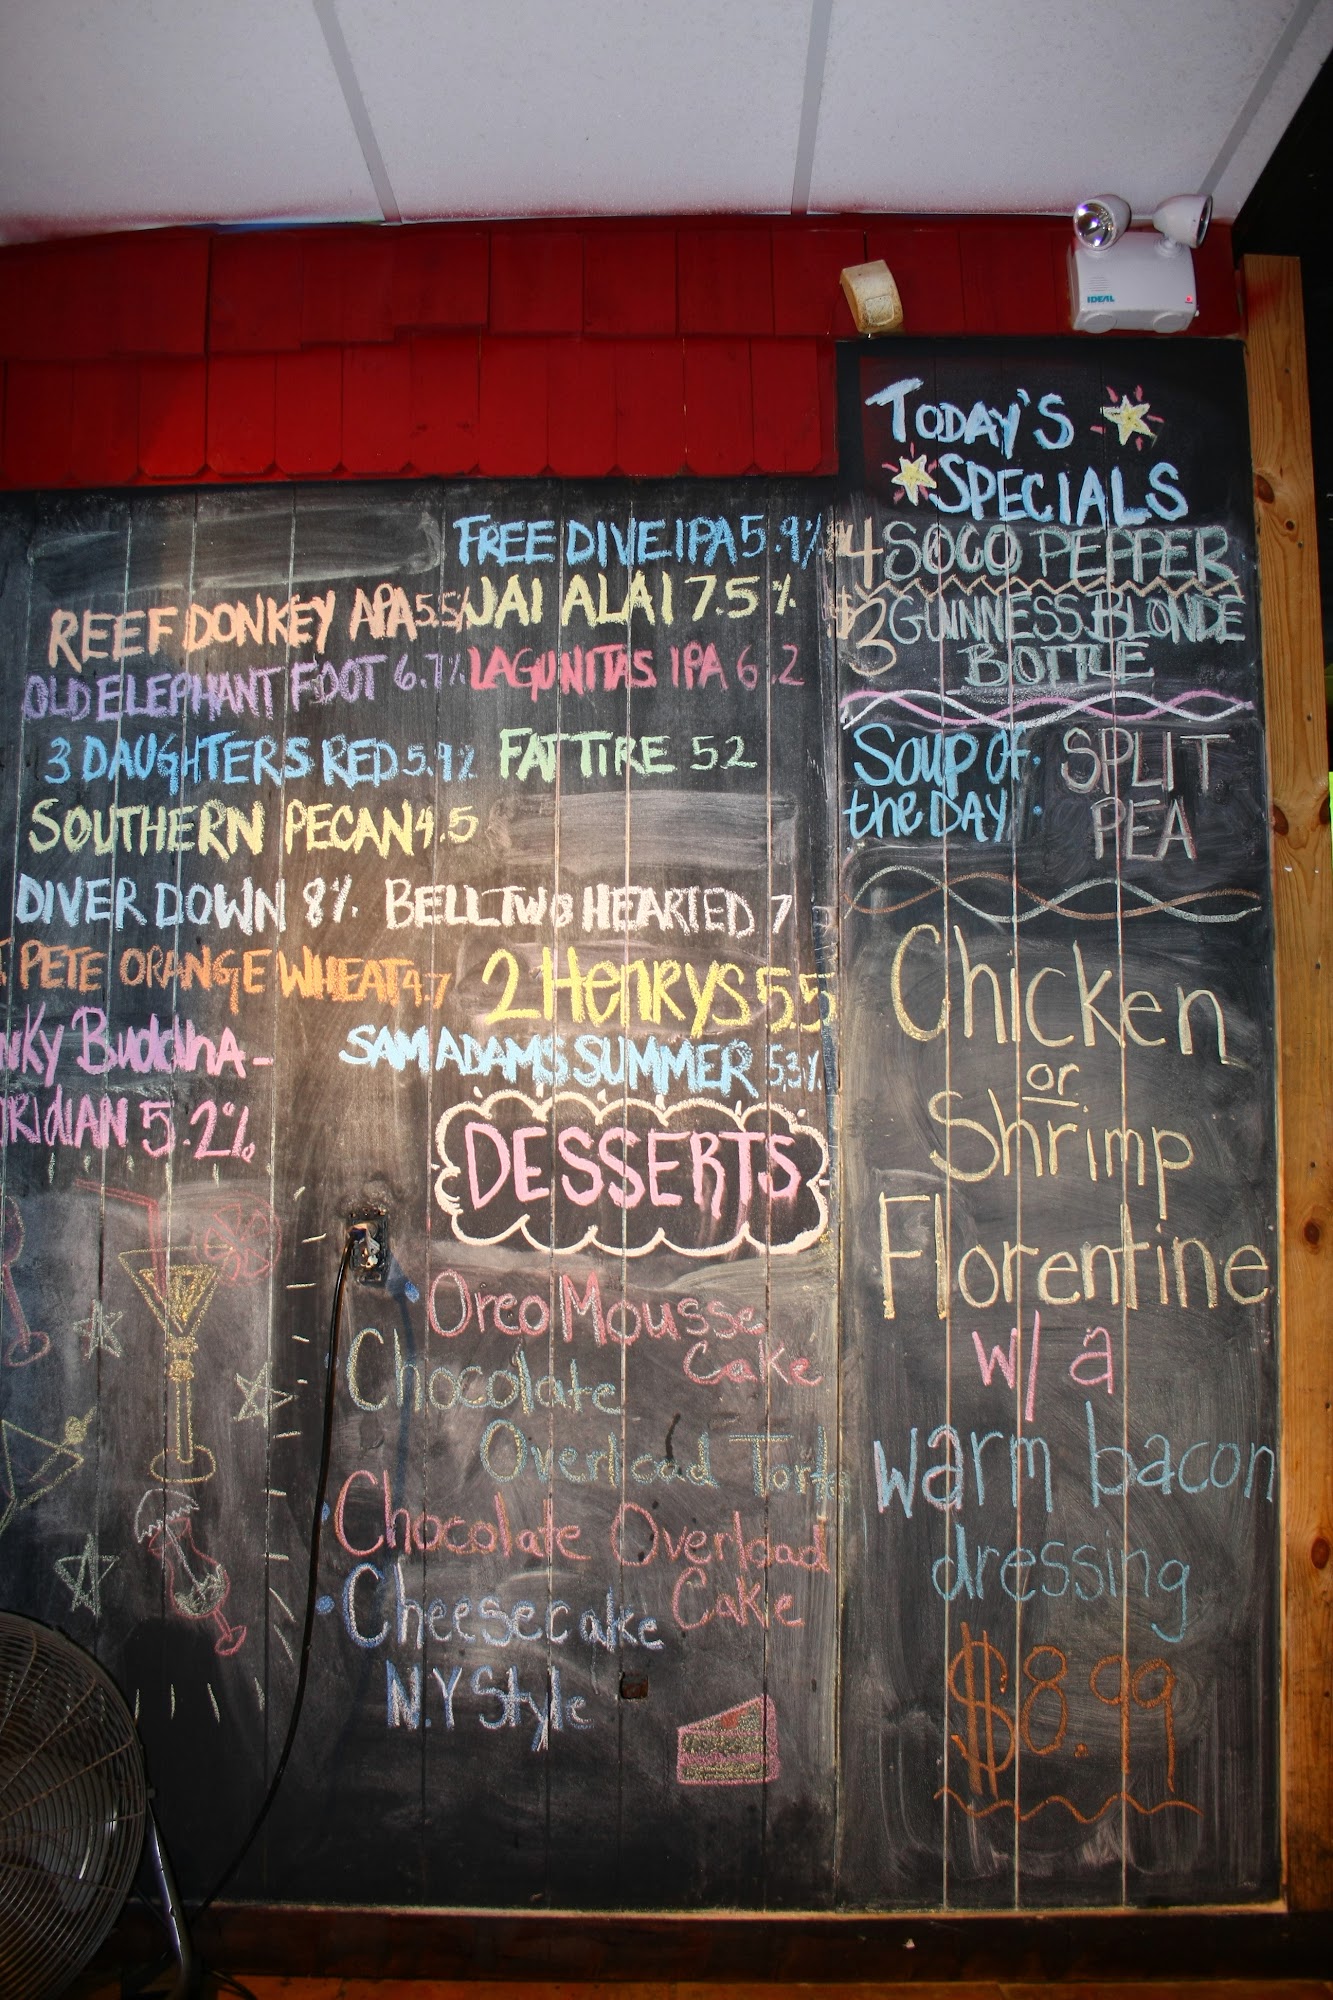 IDEAL
TODAY'S
SPECIALS
$4 SOCO PEPPER
$3 GUINNESS BLONDE
BOTTLE
Soup of
the DAY:
SPLIT
PEA
Chicken
or
Shrimp
Florentine
w/ a
warm bacon
dressing
$8.99
FREE DIVE IPA 5.9%
REEF DONKEY APA 5.5%
JAI ALAI 7.5%
OLD ELEPHANT FOOT 6.7%
LAGUNITAS IPA 6.2
3 DAUGHTERS RED 5.9%
FAT TIRE 5.2
SOUTHERN PECAN 4.5
DIVER DOWN 8%
BELL TWO HEARTED 7
PETE ORANGE WHEAT 4.7
2 HenRYS 5.5
NKY BuddhA-
SAM ADAMS SUMMER 5.3%
RIDIAN 5.2%
DESSERTS
Oreo Mousse
Cake
Chocolate
Overload Torte
Chocolate Overload
Cake
Cheesecake
N.Y Style